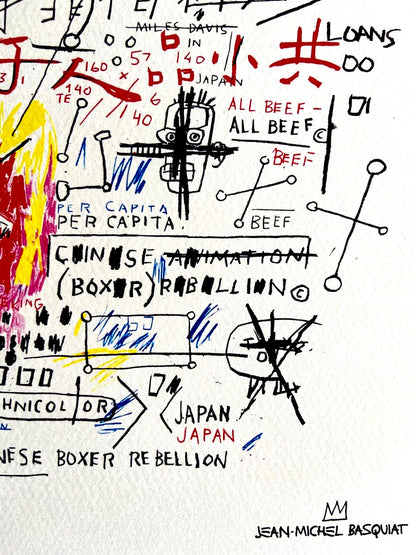 MILES DAVIS
LOANS
IN
57
140
160
JAPAN
人
小 共
OO
31
140
TE
6
140
ALL BEEF -
ALL BEEF ©
BEEF
BEEF
PER CAPITA
PER CAPITA.
CHINESE ANIMATION
(BOXER) REBELLION ©
KING
HNICOLOR
JAPAN
JAPAN
NESE BOXER REBELLION
JEAN-MICHEL BASQUIAT